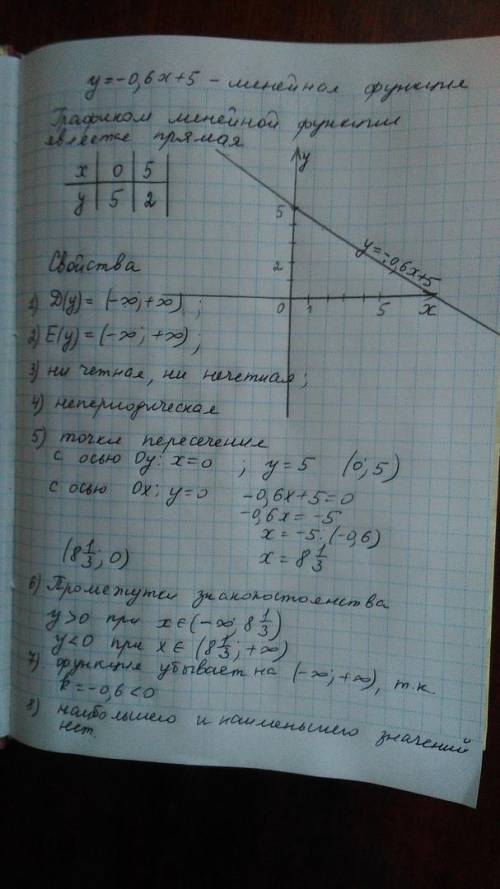 y=-0,6x+5 - линейная функция
Графиком линейной функции
является прямая
x 0 5
y 5 2
y
5
2
0 1 5 x
y=-0,6x+5
Свойства
1) D(y) = (-∞; +∞) ;
2) E(y) = (-∞; +∞) ;
3) ни четная, ни нечетная;
4) непериодическая
5) точки пересечения
с осью Oy: x=0 ; y=5 (0; 5)
с осью Ox: y=0 -0,6x+5=0
-0,6x = -5
x = -5:(-0,6)
(8 1/3; 0) x = 8 1/3
6) Промежутки знакопостоянства
y>0 при x∈(-∞; 8 1/3)
y<0 при x∈ (8 1/3; +∞)
7) функция убывает на (-∞; +∞), т.к.
k = -0,6 < 0
8) наибольшего и наименьшего значений
нет.